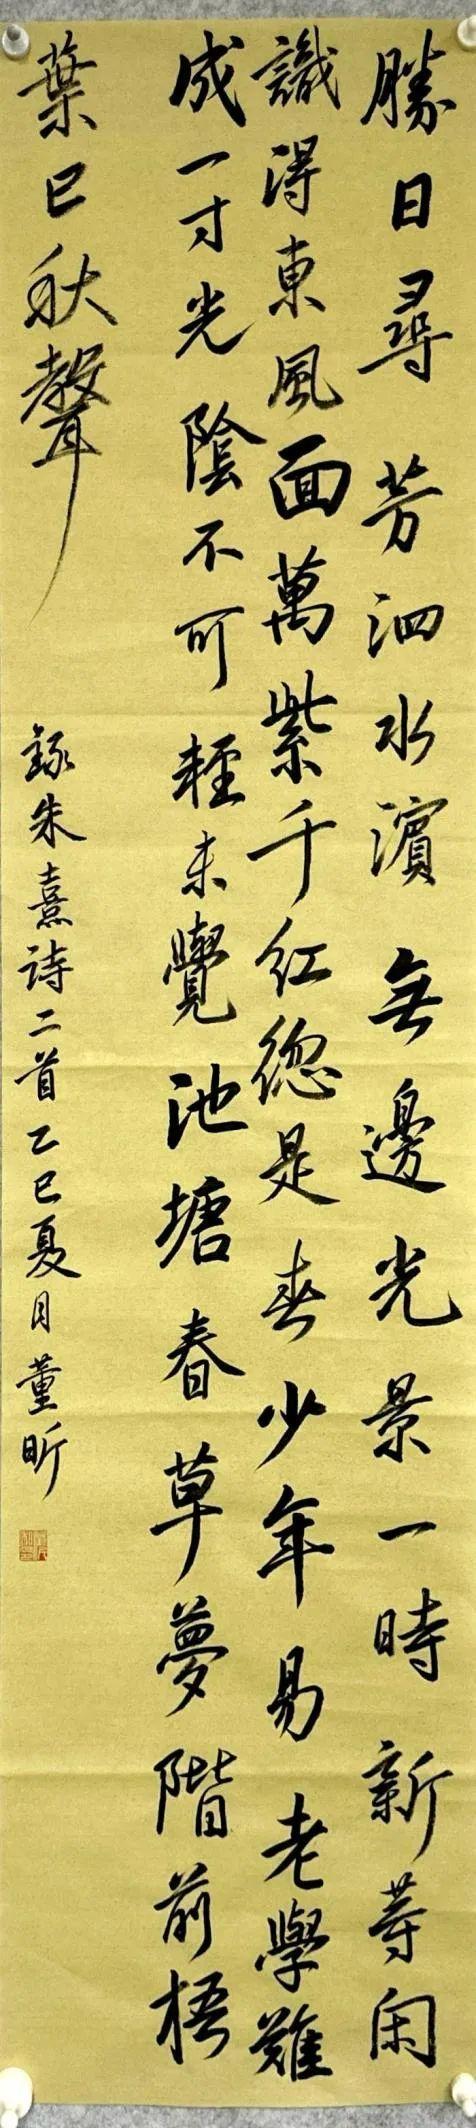 勝日尋芳泗水濱無邊光景一時新等閑
識得東風面萬紫千紅總是春少年易老學難
成一寸光陰不可輕未覺池塘春草夢階前梧
葉已秋聲
錄朱熹詩二首乙巳夏月董昕